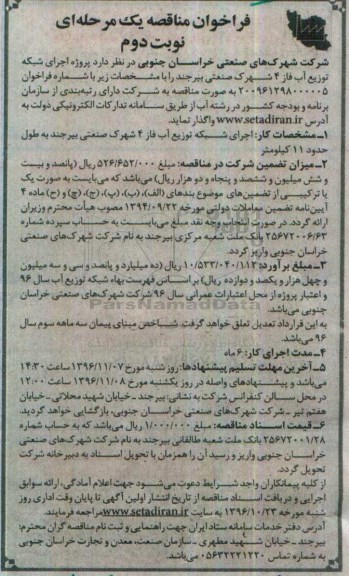 فراخوان مناقصه یک مرحله‌ای
نوبت دوم
شرکت شهرک‌های صنعتی خراسان جنوبی در نظر دارد پروژه اجرای شبکه
توزیع آب فاز ۴ شهرک صنعتی بیرجند را با مشخصات زیر با شماره فراخوان
۲۰۰۹۶۱۲۹۸۰۰۰۰۰۵ به صورت مناقصه به شرکت دارای رتبه‌بندی از سازمان
برنامه و بودجه کشور در رشته آب از طریق سامانه تدارکات الکترونیکی دولت به
آدرس www.setadiran.ir واگذار نماید.
۱-مشخصات کار: اجرای شبکه توزیع آب فاز ۴ شهرک صنعتی بیرجند به طول
حدود ۱۱ کیلومتر
۲-میزان تضمین شرکت در مناقصه: مبلغ ۵۲۶/۶۵۲/۰۰۰ ریال (پانصد و بیست
و شش میلیون و ششصد و پنجاه و دو هزار ریال) می‌باشد که می‌بایست به صورت یک
یا ترکیبی از تضمین‌های موضوع بندهای (الف)، (ب)، (پ)، (ج)، (چ) و (ح) ماده ۴
آیین‌نامه تضمین معاملات دولتی مورخه ۱۳۹۴/۰۹/۲۲ مصوب هیأت محترم وزیران
ارائه گردد. در صورت انتخاب وجه نقد مبلغ می‌بایست به حساب سپرده شماره
۲۵۶۷۲۰۰۶/۶۳ بانک ملت شعبه مرکزی بیرجند به نام شرکت شهرک‌های صنعتی
خراسان جنوبی واریز گردد.
۳-مبلغ برآورد: ۱۰/۵۳۳/۰۴۰/۱۱۲ ریال (ده میلیارد و پانصد و سی و سه میلیون
و چهل هزار و یکصد و دوازده ریال) بر اساس فهرست بهاء شبکه توزیع آب سال ۹۶
و اعتبار پروژه از محل اعتبارات عمرانی سال ۹۶ شرکت شهرک‌های صنعتی خراسان
جنوبی می‌باشد.
به این قرارداد تعدیل تعلق خواهد گرفت. شاخص مبنای پیمان سه ماهه سوم سال
۹۶ می‌باشد.
۴-مدت اجرای کار: ۶ ماه
۵-آخرین مهلت تسلیم پیشنهادها: روز شنبه مورخ ۱۳۹۶/۱۱/۰۷ ساعت ۱۴:۳۰
می‌باشد و پیشنهادهای واصله در روز یکشنبه مورخ ۱۳۹۶/۱۱/۰۸ ساعت ۱۲:۰۰
در محل سالن کنفرانس شرکت به نشانی: بیرجند ـ خیابان شهید محلاتی ـ خیابان
هفتم تیر ـ شرکت شهرک‌های صنعتی خراسان جنوبی، بازگشایی خواهد گردید.
۶-قیمت اسناد مناقصه: مبلغ ۱/۰۰۰/۰۰۰ ریال می‌باشد که به حساب شماره
۲۵۶۷۲۰۰۱/۲۸ بانک ملت شعبه طالقانی بیرجند به نام شرکت شهرک‌های صنعتی
خراسان جنوبی واریز و رسید آن را همزمان با تحویل اسناد به دبیرخانه شرکت
تحویل گردد.
از کلیه پیمانکاران واجد شرایط دعوت می‌شود جهت اعلام آمادگی، ارائه سوابق
اجرایی و دریافت اسناد مناقصه از تاریخ انتشار اولین آگهی تا پایان وقت اداری روز
شنبه مورخه ۱۳۹۶/۱۰/۲۳ به سایت www.setadiran.ir مراجعه فرمایند.
آدرس دفتر خدمات سامانه ستاد ایران جهت راهنمایی و ثبت نام مناقصه گران محترم:
بیرجند ـ خیابان شهید مطهری ـ سازمان صنعت، معدن و تجارت خراسان جنوبی
به شماره تماس ۰۵۶۳۲۲۲۱۲۲۰ می‌باشد.
ParsNamadData